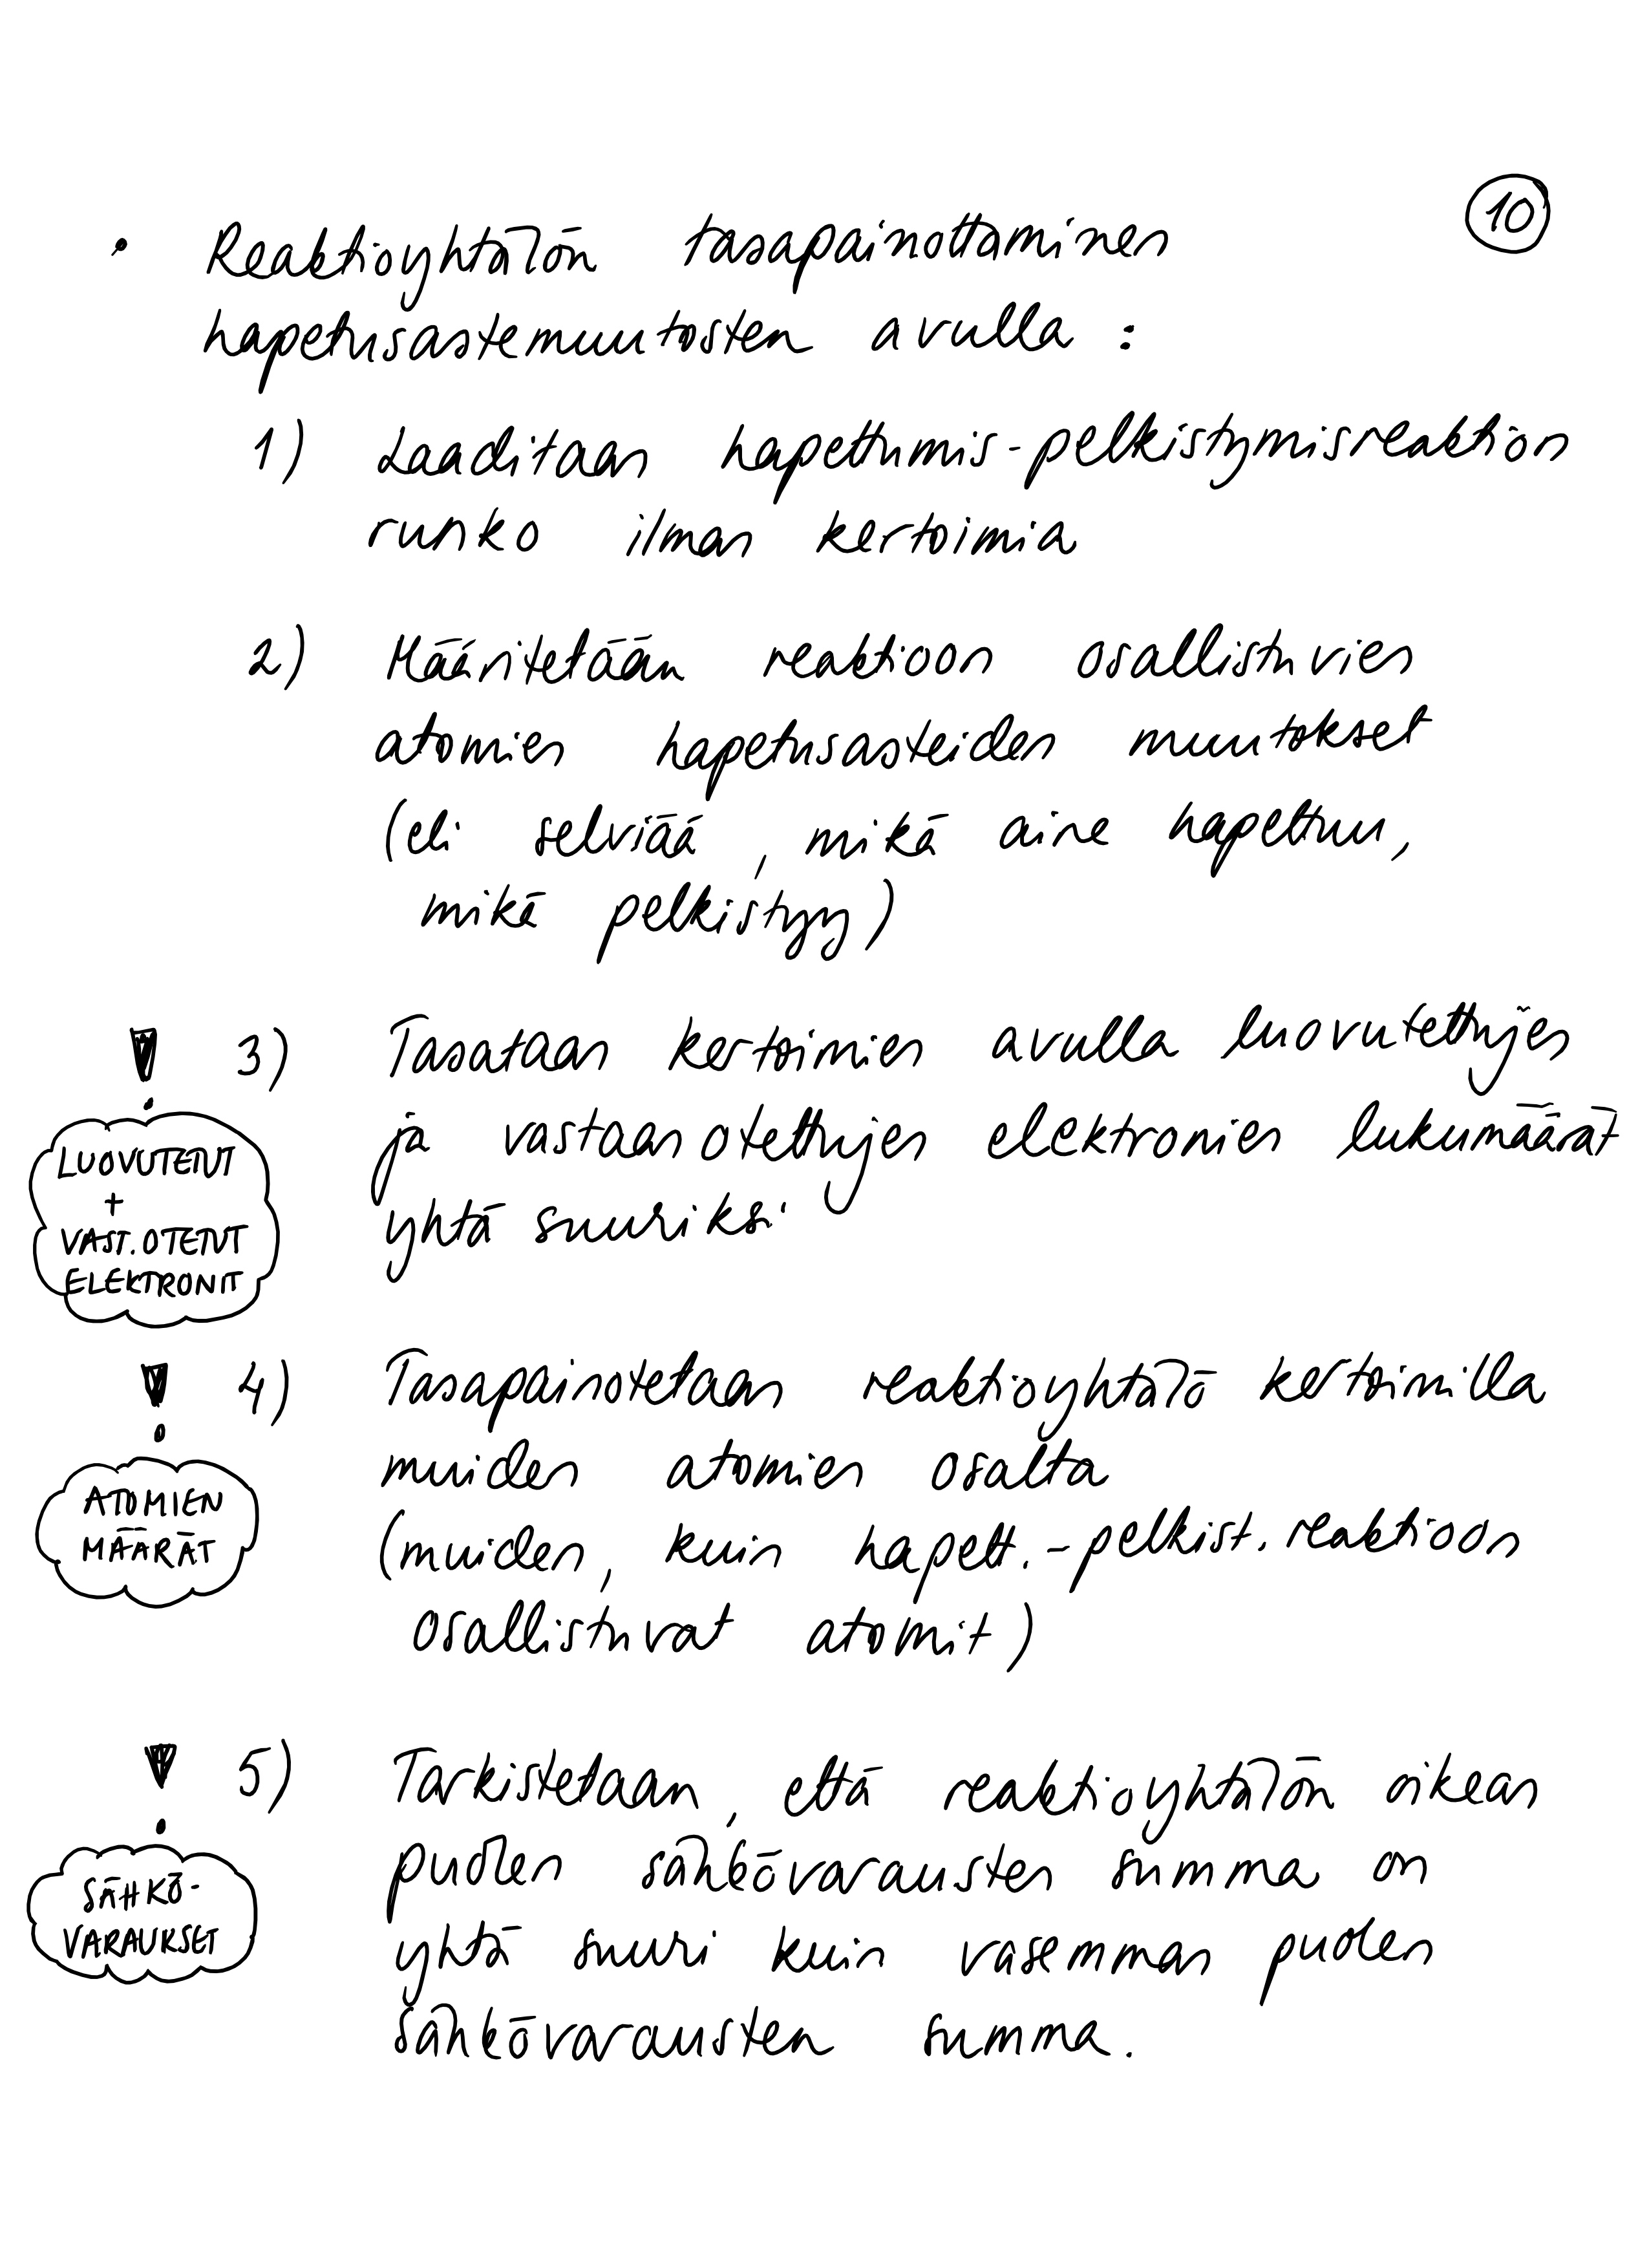 10
• Reaktioyhtälön tasapainottaminen
hapetusastemuutosten avulla :
1) Laaditaan hapettumis-pelkistymisreaktion
runko ilman kertoimia
2) Määritetään reaktioon osallistuvien
atomien hapetusasteiden muutokset
(eli selviää, mikä aine hapettuu,
mikä pelkistyy)
3) Tasataan kertoimien avulla luovutettujen
ja vastaanotettujen elektronien lukumäärät
yhtä suuriksi
LUOVUTETUT
+
VAST.OTETUT
ELEKTRONIT
4) Tasapainotetaan reaktioyhtälö kertoimilla
muiden atomien osalta
(muiden, kuin hapett.-pelkist. reaktioon
osallistuvat atomit)
ATOMIEN
MÄÄRÄT
5) Tarkistetaan, että reaktioyhtälön oikean
puolen sähkövarausten summa on
yhtä suuri kuin vasemman puolen
sähkövarausten summa.
SÄHKÖ-
VARAUKSET